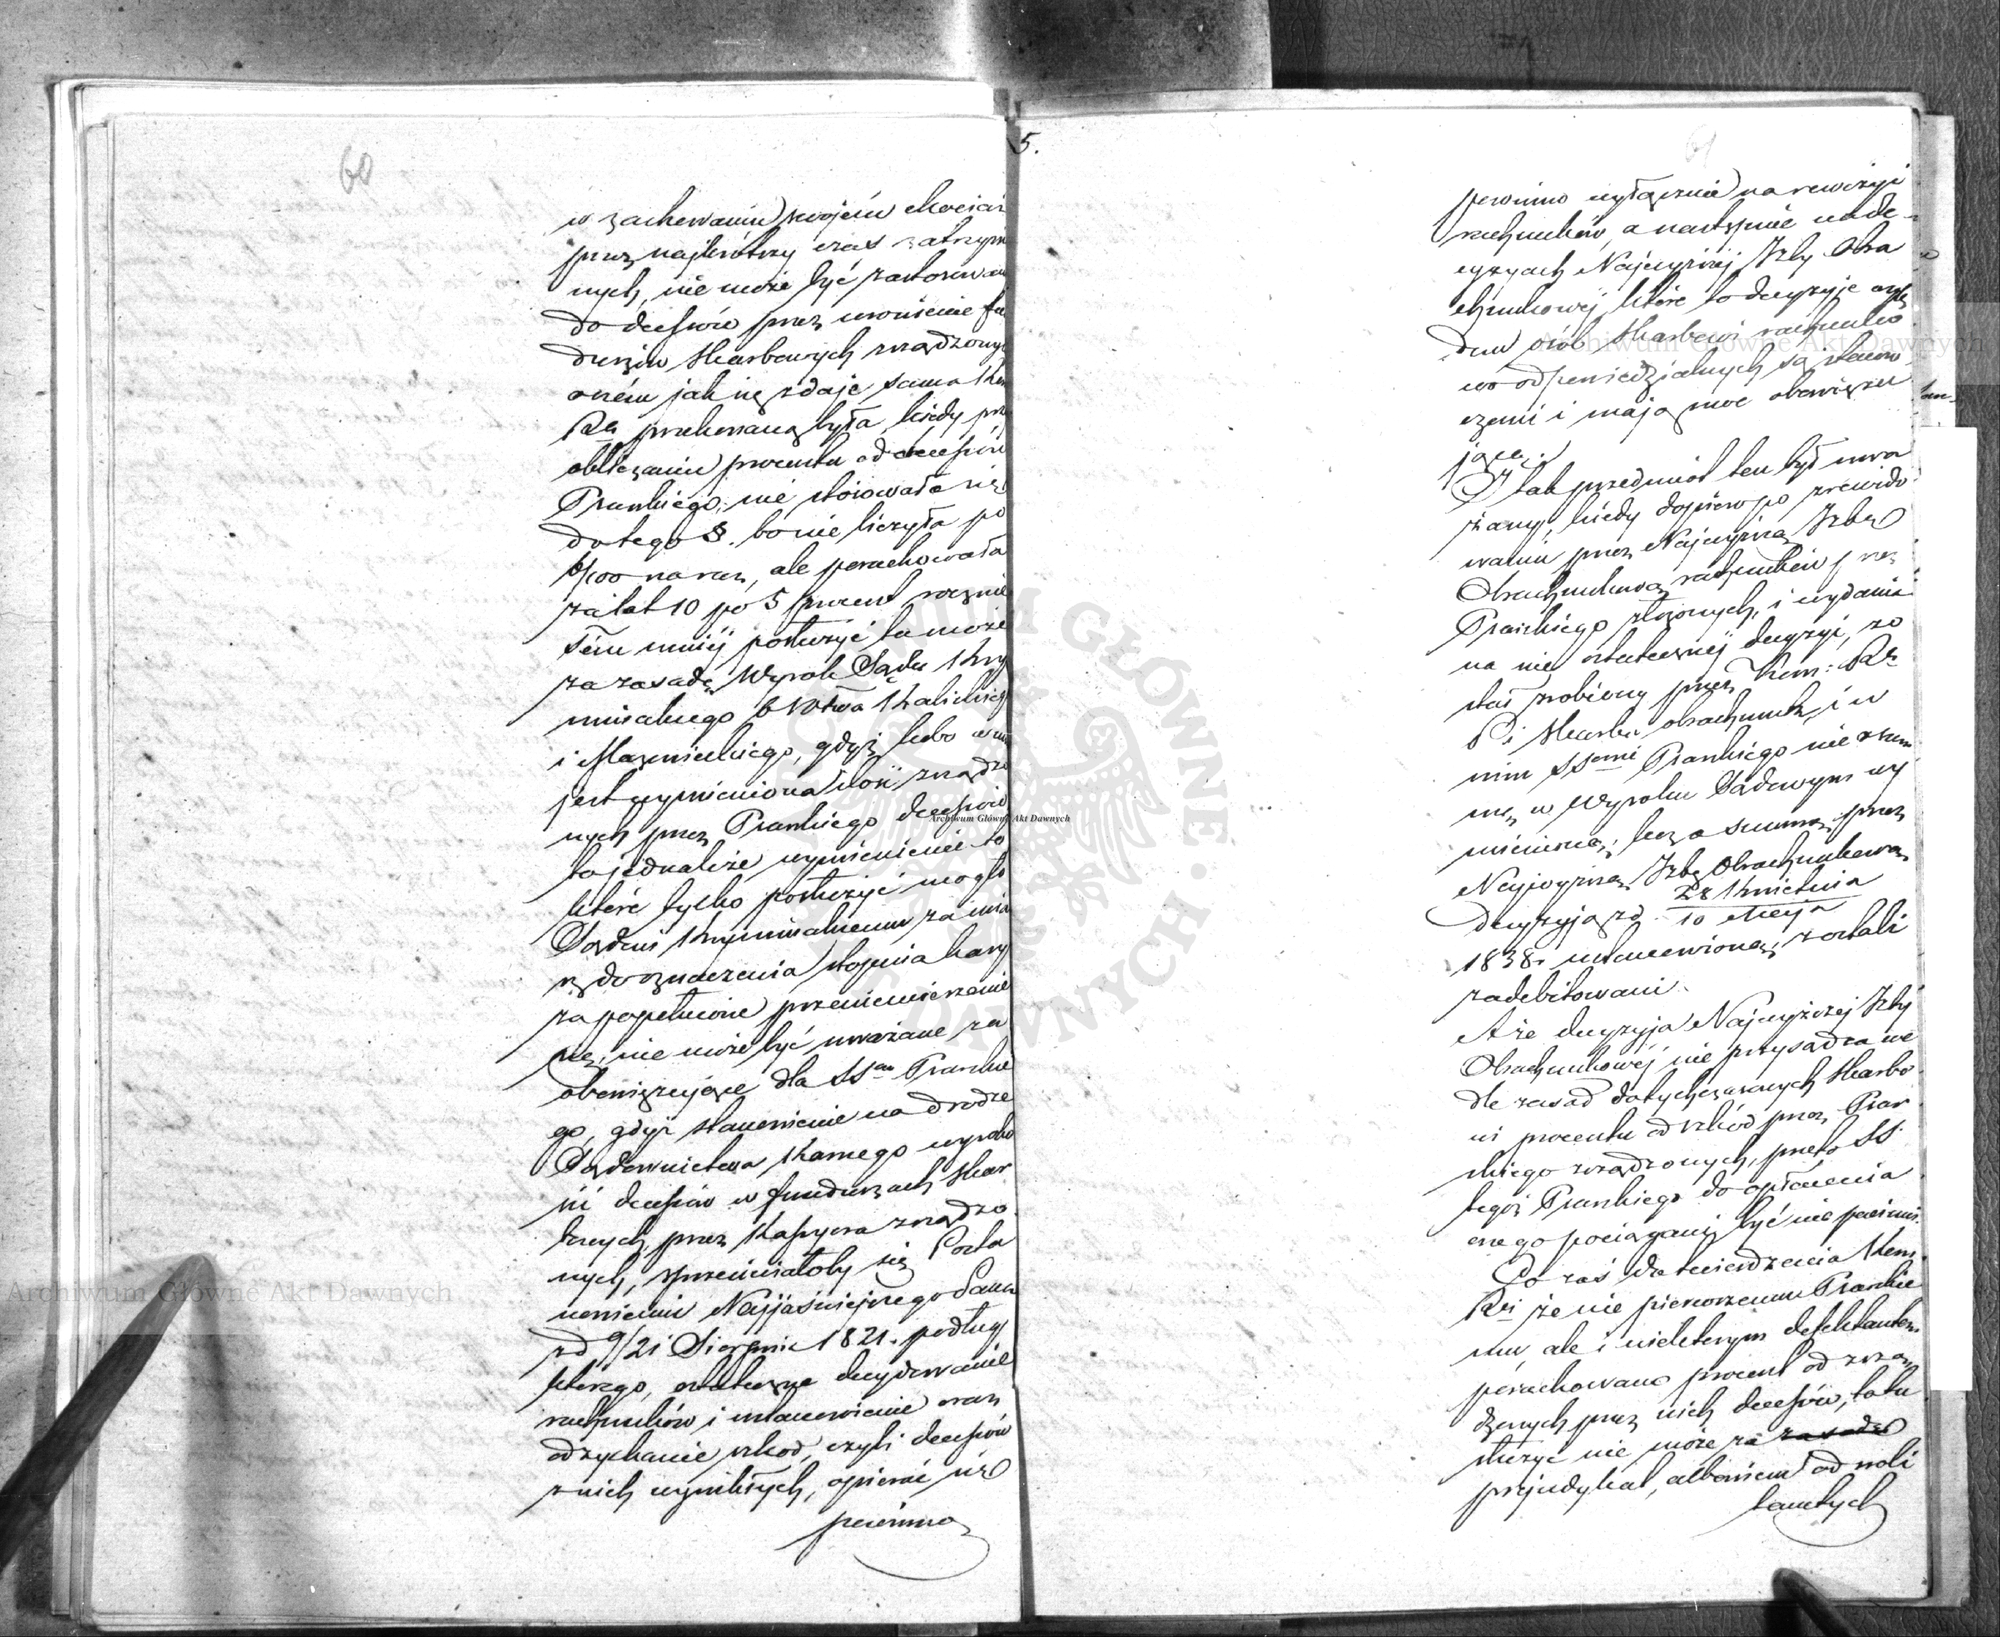 60
w zachowaniu swojém chociaż
przez najkrótszy czas zatrzym
nych, nie może być zastosowan
do decessów przez uronienie fu
duszów Skarbowych zrządzony
o czém jak się zdaje sama Kom
Rz przekonaną była, kiedy prz
obliczaniu procentu od decessów
Prawskiego, nie stosowała się
do tego §. bo nie liczyła po
6/100 na raz, ale porachowała
za lat 10 po 5 procent rocznie
Tém mniéj posłużyć tu może
za zasadę, Wyrok Sądu Kry
minalnego Wtwa Kaliskieg
i Mazowieckiego, gdyż lubo w nim
jest wymieniona ilość, zrządzo
nych przez Prawskiego decessów
to jednakże wymienienie to
które tylko posłużyć mogło
Sądowi Kryminalnemu za mia
rę do oznaczenia stopnia kary
za popełnione przeniewierzenie
się, nie może być uważane za
obowiązujące dla SSów Prawskie
go, gdyż stanowienie na drodze
Sądownictwa Karnego wyroko
ść decessów w funduszach Skar
bowych przez Kassyera zrządzo
nych, sprzeciwiałoby się Posta
nowieniu Najjaśniejszego Pana
z d 9/21 Sierpnia 1821. podług
którego, ostateczne decydowanie
rachunków i ustanowienie oraz
odzyskanie szkod, czyli decessów
z nich wynikłych, opierać się
powinno
5.
61
powinno wyłącznie na rewizyi
rachunków, a następnie na de-
cyzyach Najwyższej Izby Obra
chunkowej, które to decyzyje wzglę
dem osób Skarbowi rachunko
wo odpowiedzialnych są stanow
czemi i mają moc obowiązu
jącą.
I tak przedmiot ten był uwa
żany, kiedy dopiero po zrewido
waniu przez Najwyższą Izbę
Obrachunkową rachunków przez
Prawskiego złożonych, i wydaniu
na nie ostatecznéj decyzyi, zo
stał zrobiony przez Kom: Rz
P i Skarbu obrachunek, i w
nim SSorowie Prawskiego nie sum
mą w Wyroku Sądowym wy
mienioną, lecz summą przez
Najwyższą Izbę Obrachunkową
decyzyją z d. 28 Kwietnia
10 Maja
1838 ustanowioną, zostali
zadebitowani.
A że decyzyja Najwyższej Izby
Obrachunkowéj nie przysądza we
dle zasad dotychczasowych Skarbo
wi procentu od szkód przez Praw
skiego zrządzonych, przeto SS
tegoż Prawskiego do opłacenia
onego pociągani być nie powinni.
Co zaś do twierdzenia Kom.
Rz że nie pierwszemu Prawskie
mu ale i niektórym defektantom
porachowano procent od zrzą
dzonych przez nich decessów, to słu
służyć nie może za zasadę
prejudykat, albowiem od noli
tamtych
Archiwum Główne Akt Dawnych
Archiwum Główne Akt Dawnych
Archiwum Główne Akt Dawnych